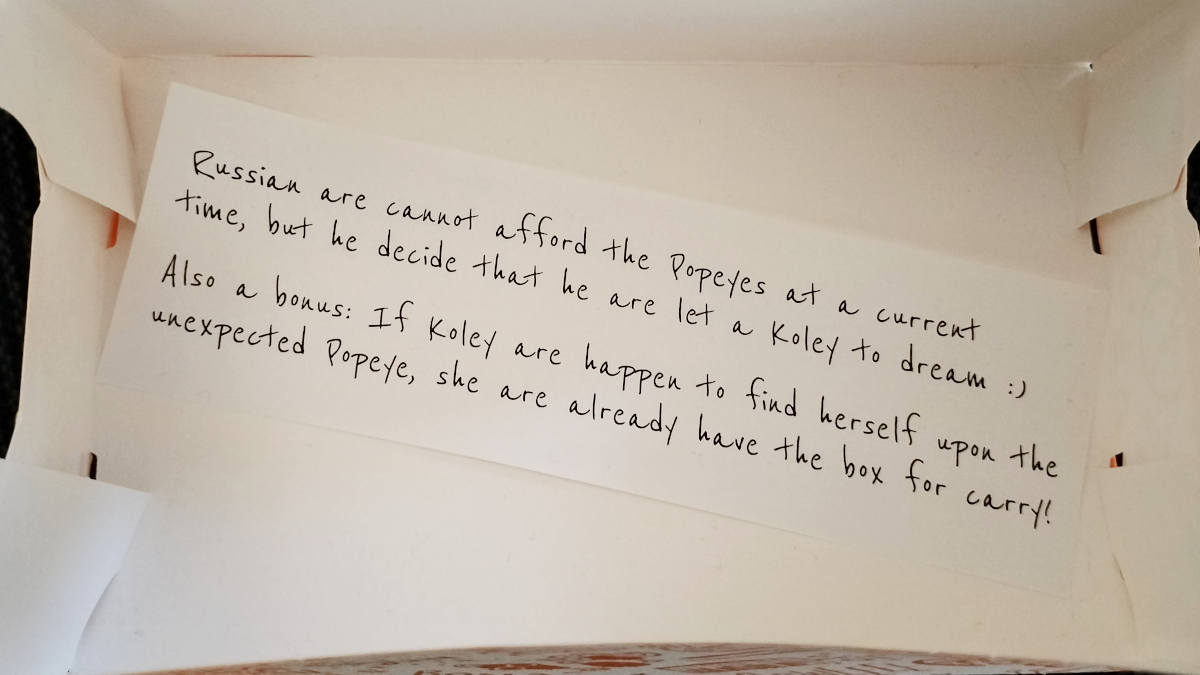 Russian are cannot afford the Popeyes at a current
time, but he decide that he are let a Koley to dream :)
Also a bonus: If Koley are happen to find herself upon the
unexpected Popeye, she are already have the box for carry!